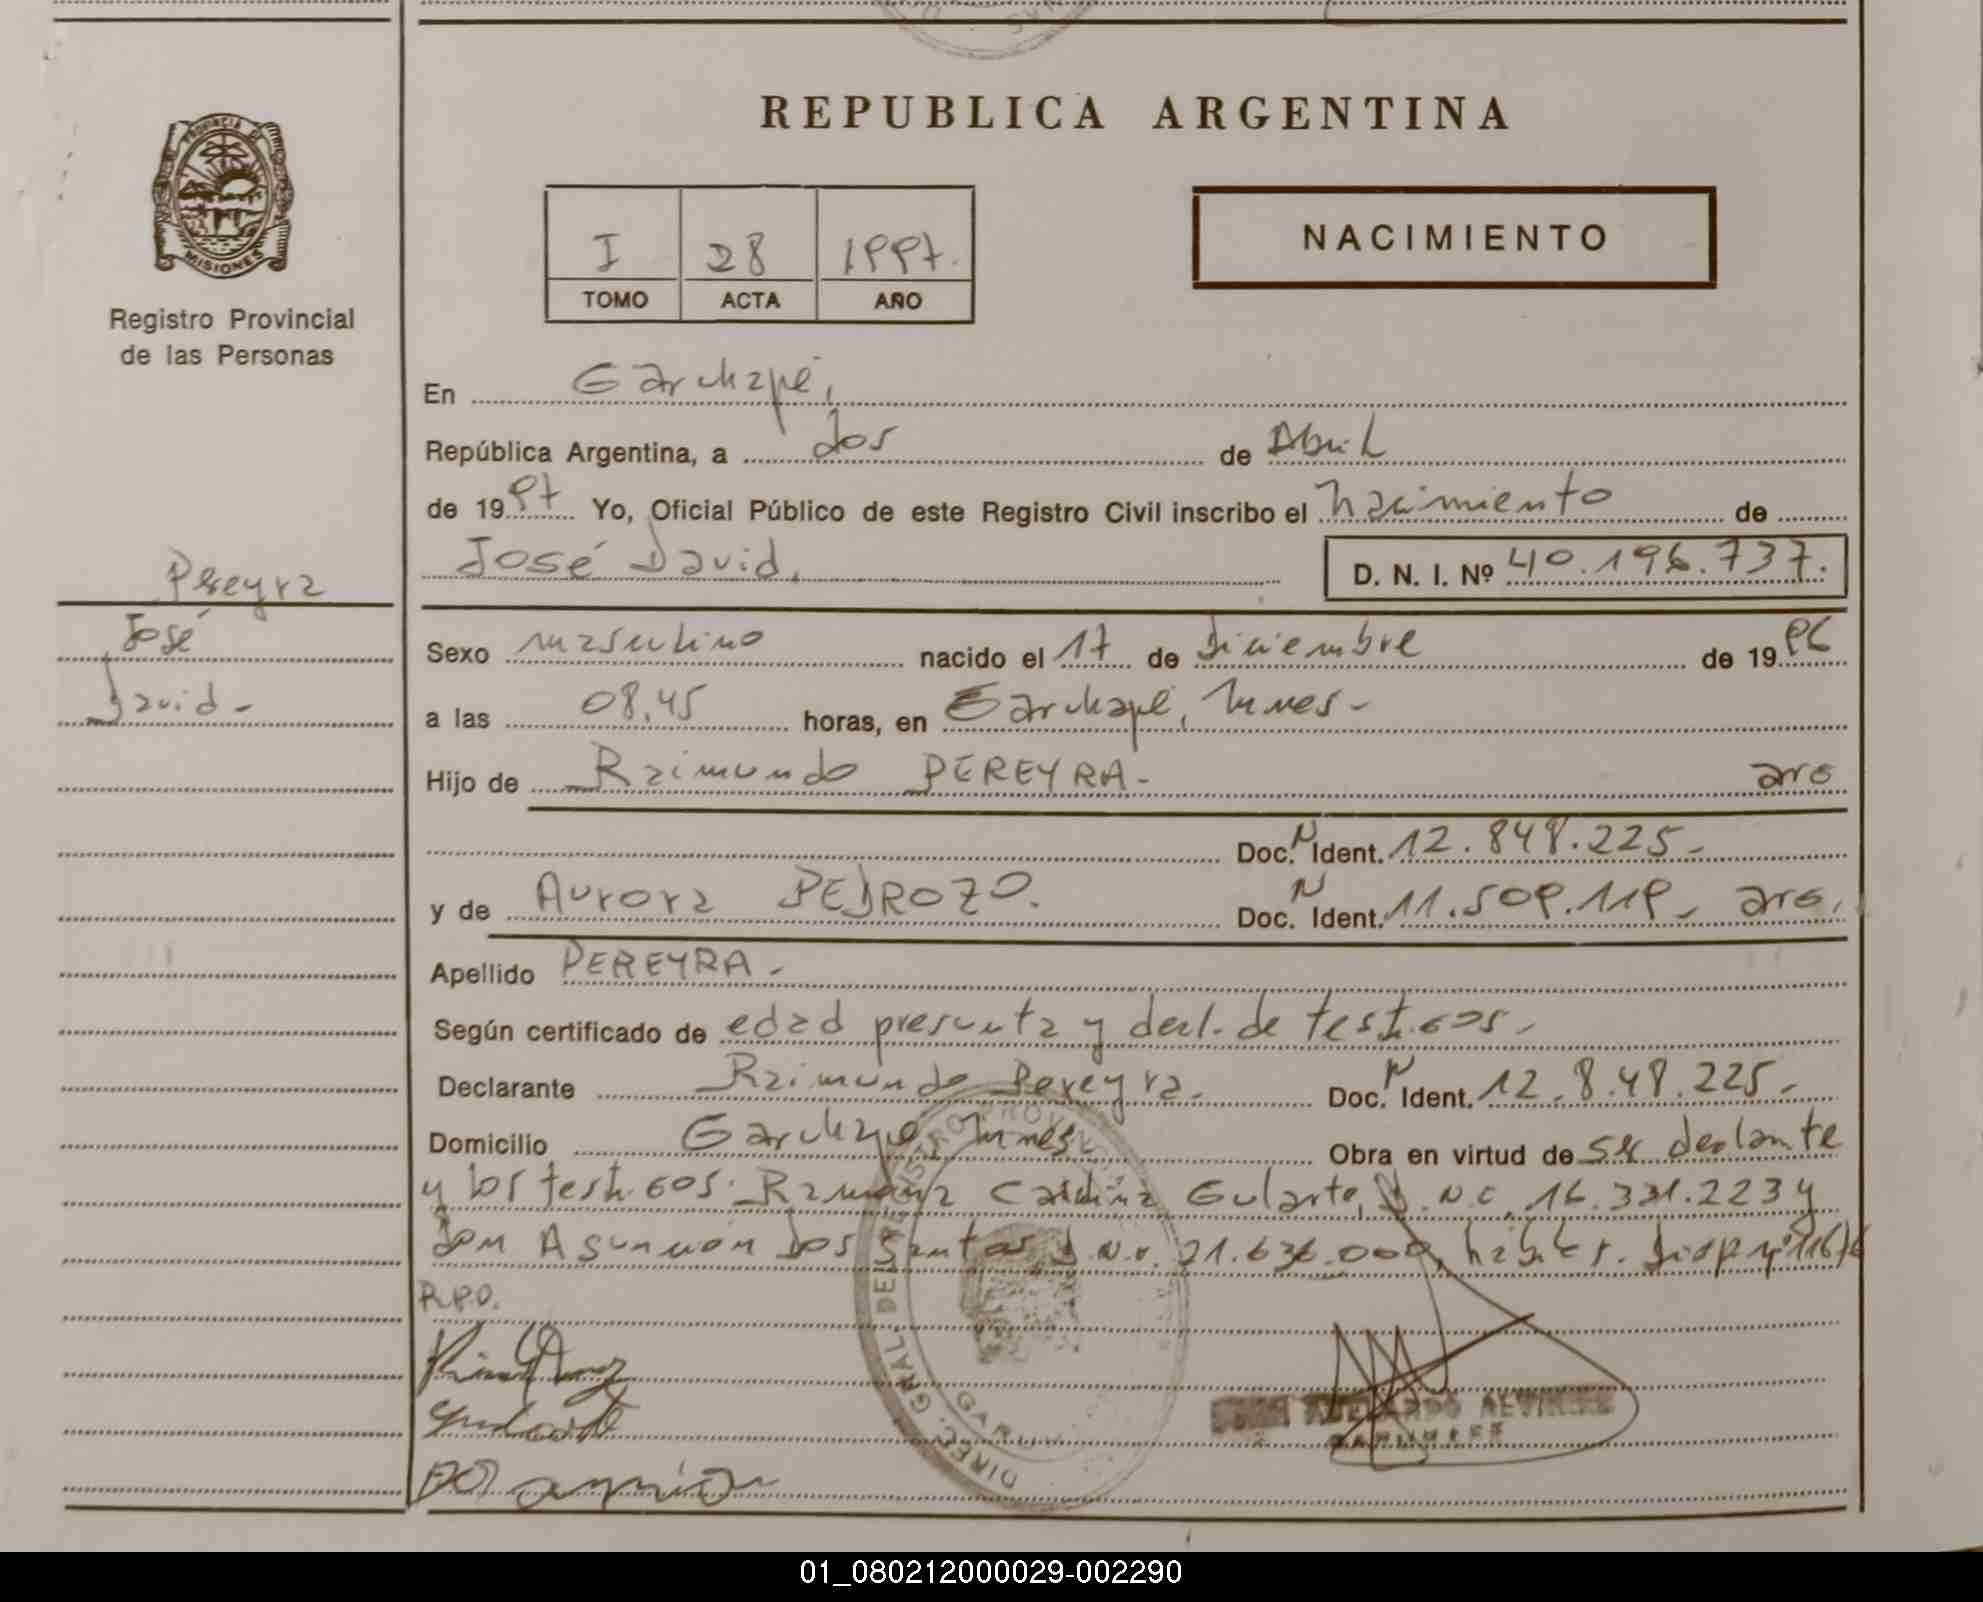 REPUBLICA ARGENTINA
PROVINCIA DE
MISIONES
Registro Provincial
de las Personas
I 28 1997.
TOMO ACTA AÑO
NACIMIENTO
En Garuhapé,
República Argentina, a dos de Abril
de 1997 Yo, Oficial Público de este Registro Civil inscribo el nacimiento de
José David. D. N. I. Nº 40.196.737.
Pereyra
José
David-
Sexo masculino nacido el 17 de Diciembre de 1996
a las 08,45 horas, en Garuhapé, Mnes-
Hijo de Raimundo PEREYRA- arg
Doc. N Ident. 12.848.225-
y de Aurora PEDROZO. Doc. N Ident. 11.509.119- arg.
Apellido PEREYRA-
Según certificado de edad presunta y decl. de testigos-
Declarante Raimundo Pereyra. Doc. N Ident. 12.848.225-
Domicilio Garuhapé Mnes Obra en virtud de ser declante
y los testigos: Ramona Gularte, D.N.I. 16.331.223 y
Don Asunción Dos Santos D.N.I. 21.636.000, hábiles.
R.P.O.
DIREC. GRAL. DEL REGISTRO PROVINC
GARU
01_080212000029-002290